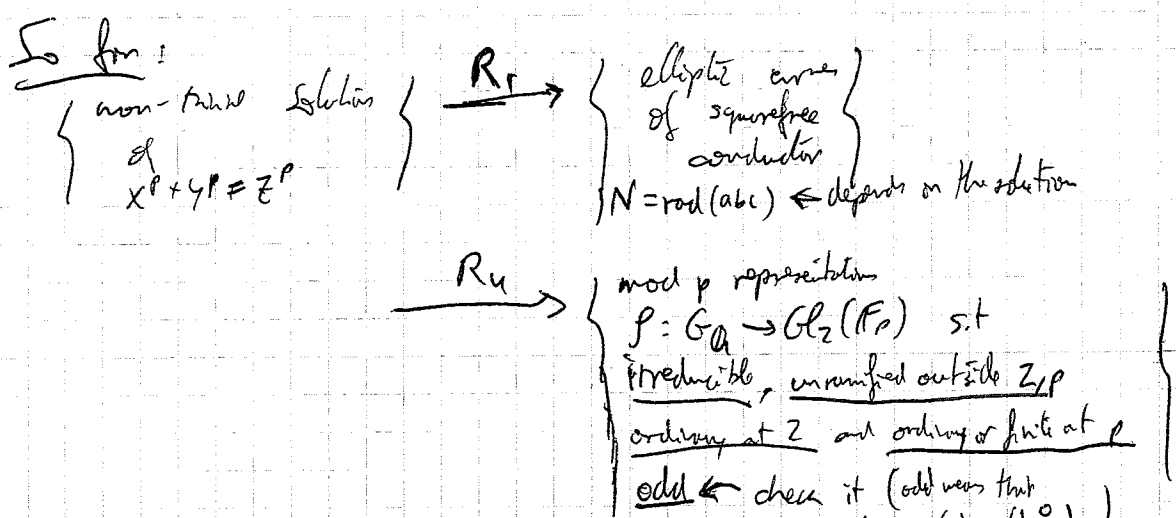 So far:
{ non-trivial solutions of x^p + y^p = z^p }
R_r →
{ elliptic curves of squarefree conductor }
N = rad(abc) ← depends on the solution
R_4 →
{ mod p representations
ρ = G_Q → Gl_2(F_p) s.t
irreducible, unramified outside 2,p
ordinary at 2 and ordinary or finite at p
odd ← check it (odd means that